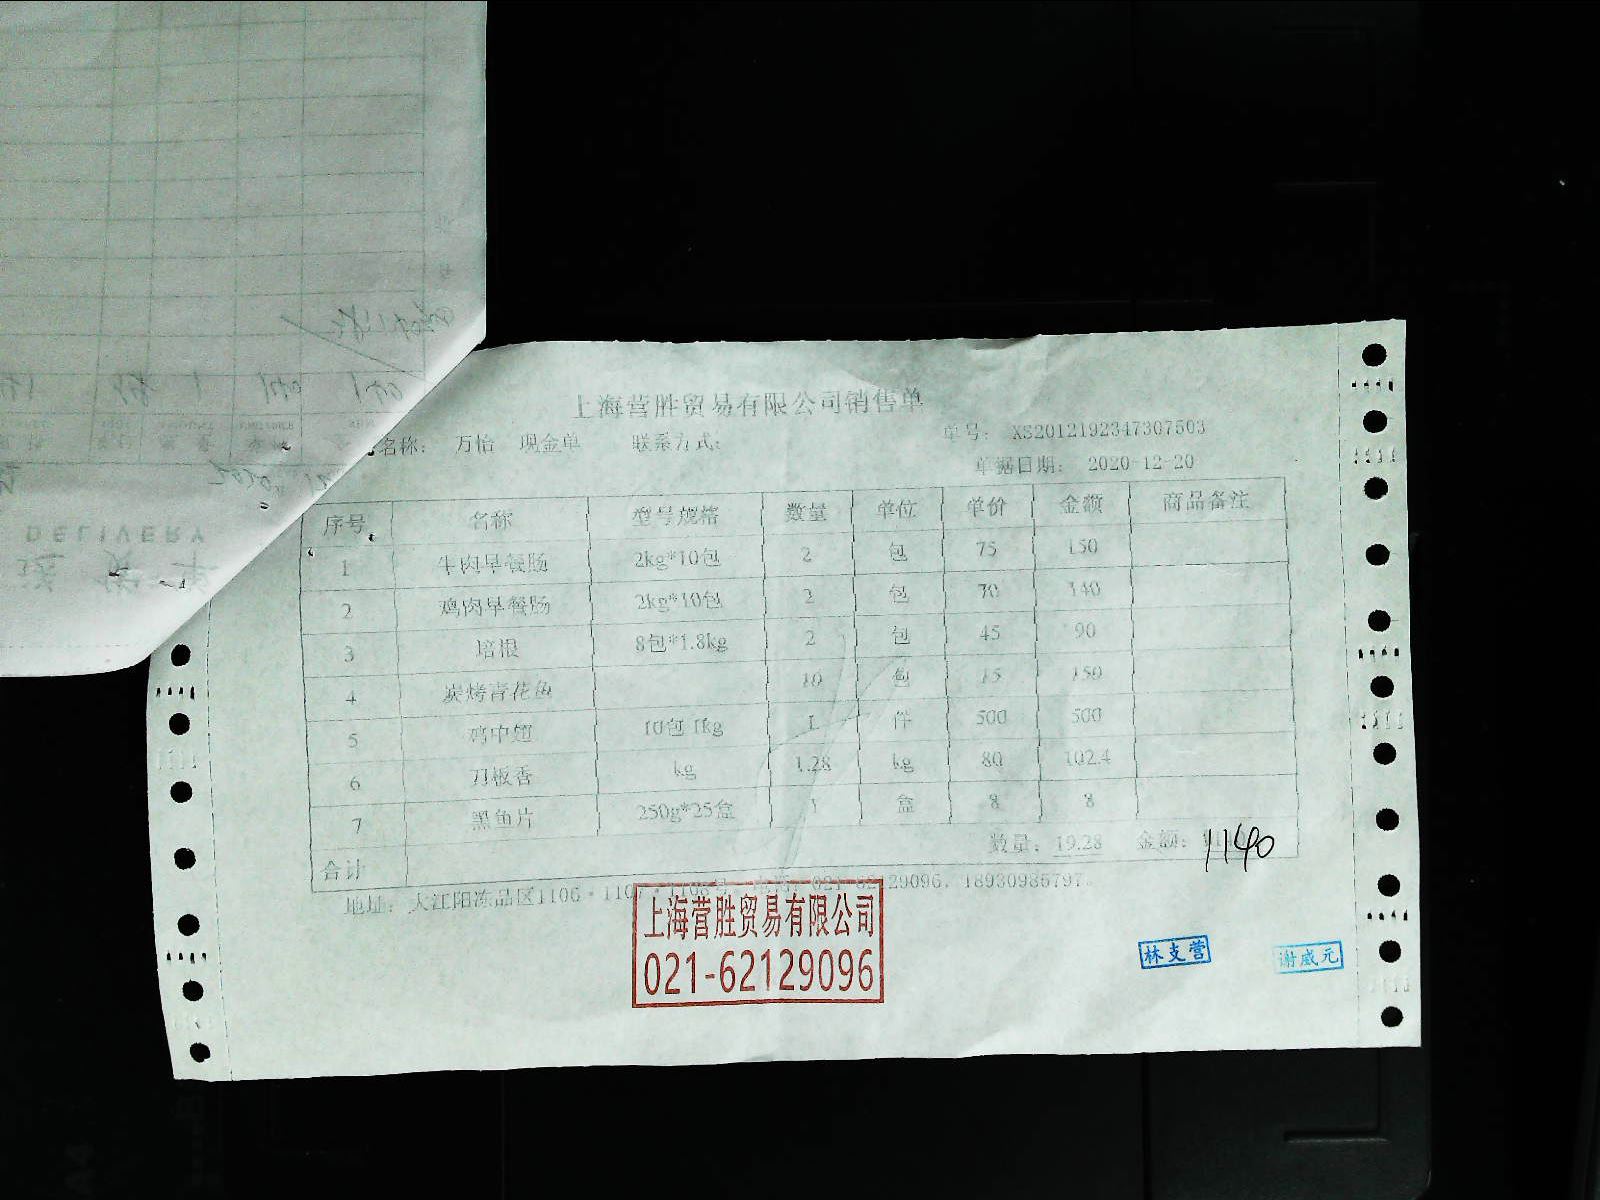 上海营胜贸易有限公司销售单
名称： 万怡 现金单 联系方式： 单号： XS2012192347307503
单据日期： 2020-12-20
序号 名称 型号规格 数量 单位 单价 金额 商品备注
1 牛肉早餐肠 2kg*10包 2 包 75 150
2 鸡肉早餐肠 2kg*10包 2 包 70 140
3 培根 8包*1.8kg 2 包 45 90
4 炭烤青花鱼 10 包 15 150
5 鸡中翅 10包 1kg 1 件 500 500
6 刀板香 kg 1.28 kg 80 102.4
7 黑鱼片 250g*25盒 1 盒 8 8
合计 数量：19.28 金额： 1140
地址： 大江阳冻品区1106·1107·1108号 电话：021-62129096，18930986797。
上海营胜贸易有限公司
021-62129096
林支营 谢威元
DELIVERY